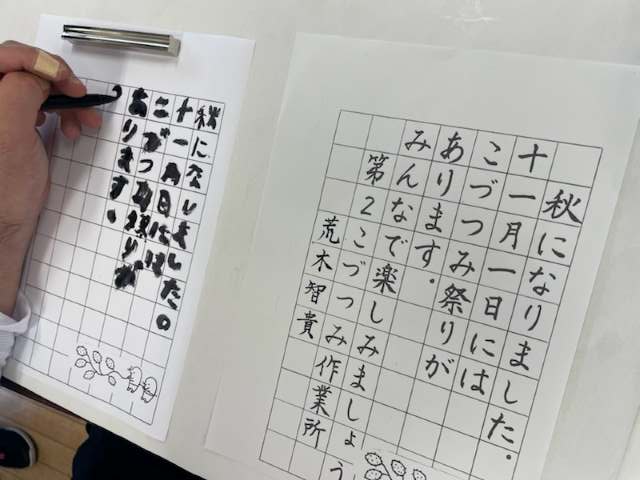 秋になりました。
十一月一日には
こづつみ祭りが
あります。
みんなで楽しみましょう
第2こづつみ作業所
荒木智貴
秋になりました。
十一月一日には
こづつみ祭りが
あります。